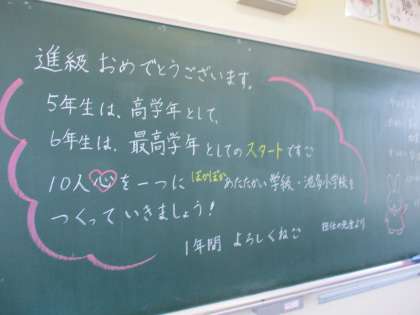 進級 おめでとうございます。
5年生は、高学年として、
6年生は、最高学年としてのスタートです。
10人 心を一つに ぽかぽかあたたかい学級・池多小学校を
つくっていきましょう!
1年間 よろしくね。
担任の先生より